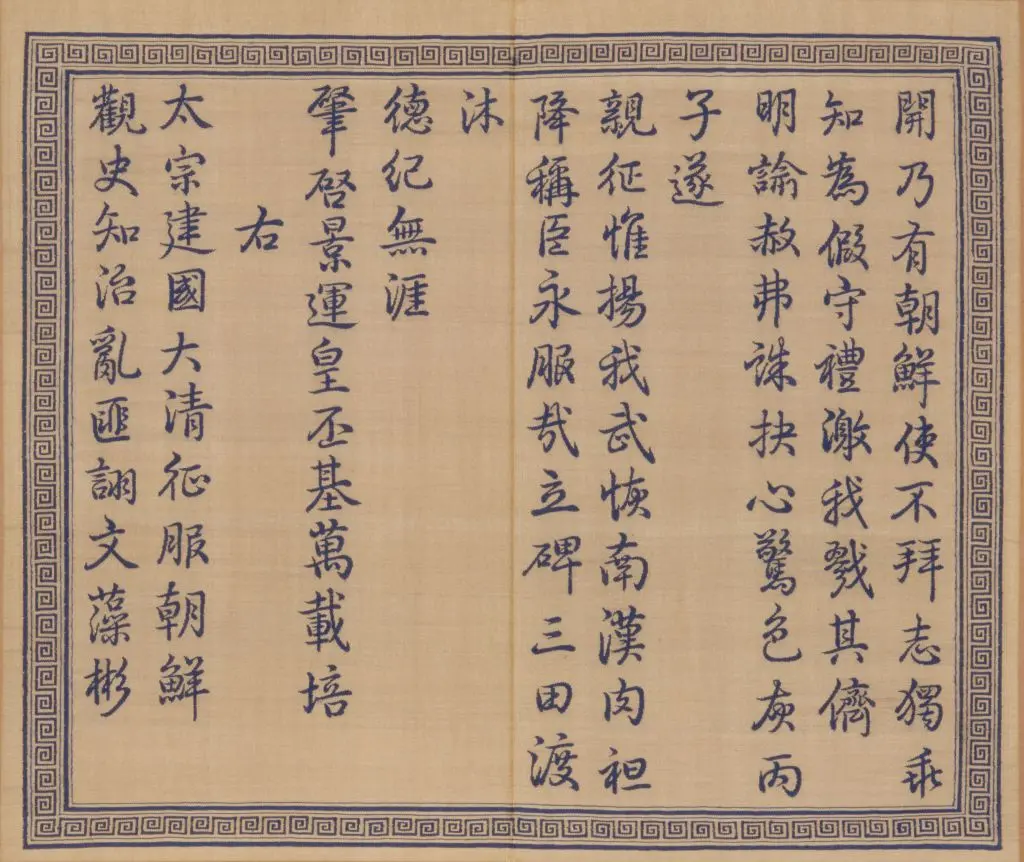 開乃有朝鮮使不拜志獨乖
知為假守禮激我戮其儕
明諭赦弗誅抉心驚色灰丙
子遂
親征惟揚我武恢南漢肉袒
降稱臣永服哉立碑三田渡
沐
德紀無涯
肇啓景運皇丕基萬載培
右
太宗建國大清征服朝鮮
觀史知治亂匪詡文藻彬